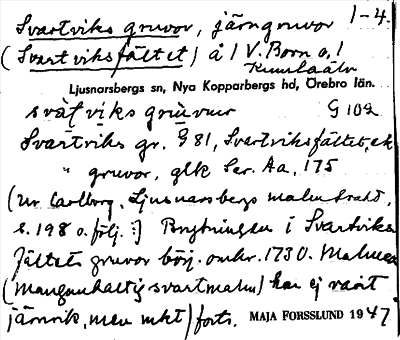 Svartviks gruvor, järngruvor 1-4.
(Svartviksfältet) å 1 V. Born o. 1
Kumlaälv
Ljusnarsbergs sn, Nya Kopparbergs hd, Örebro län.
svàţviks grùvur G 102
Svartviks gr. G 81, Svartviksfältet, ek
" gruvor, glk Ser. Aa, 175
(ur Carlborg, Ljusnarsbergs malmtrakt,
s. 198 o. följ.:) Brytningen i Svartviks
fältets gruvor börj. omkr. 1730. Malmen
(manganhaltig svartmalm) har ej varit
järnrik, men mkt) forts. MAJA FORSSLUND 1947.